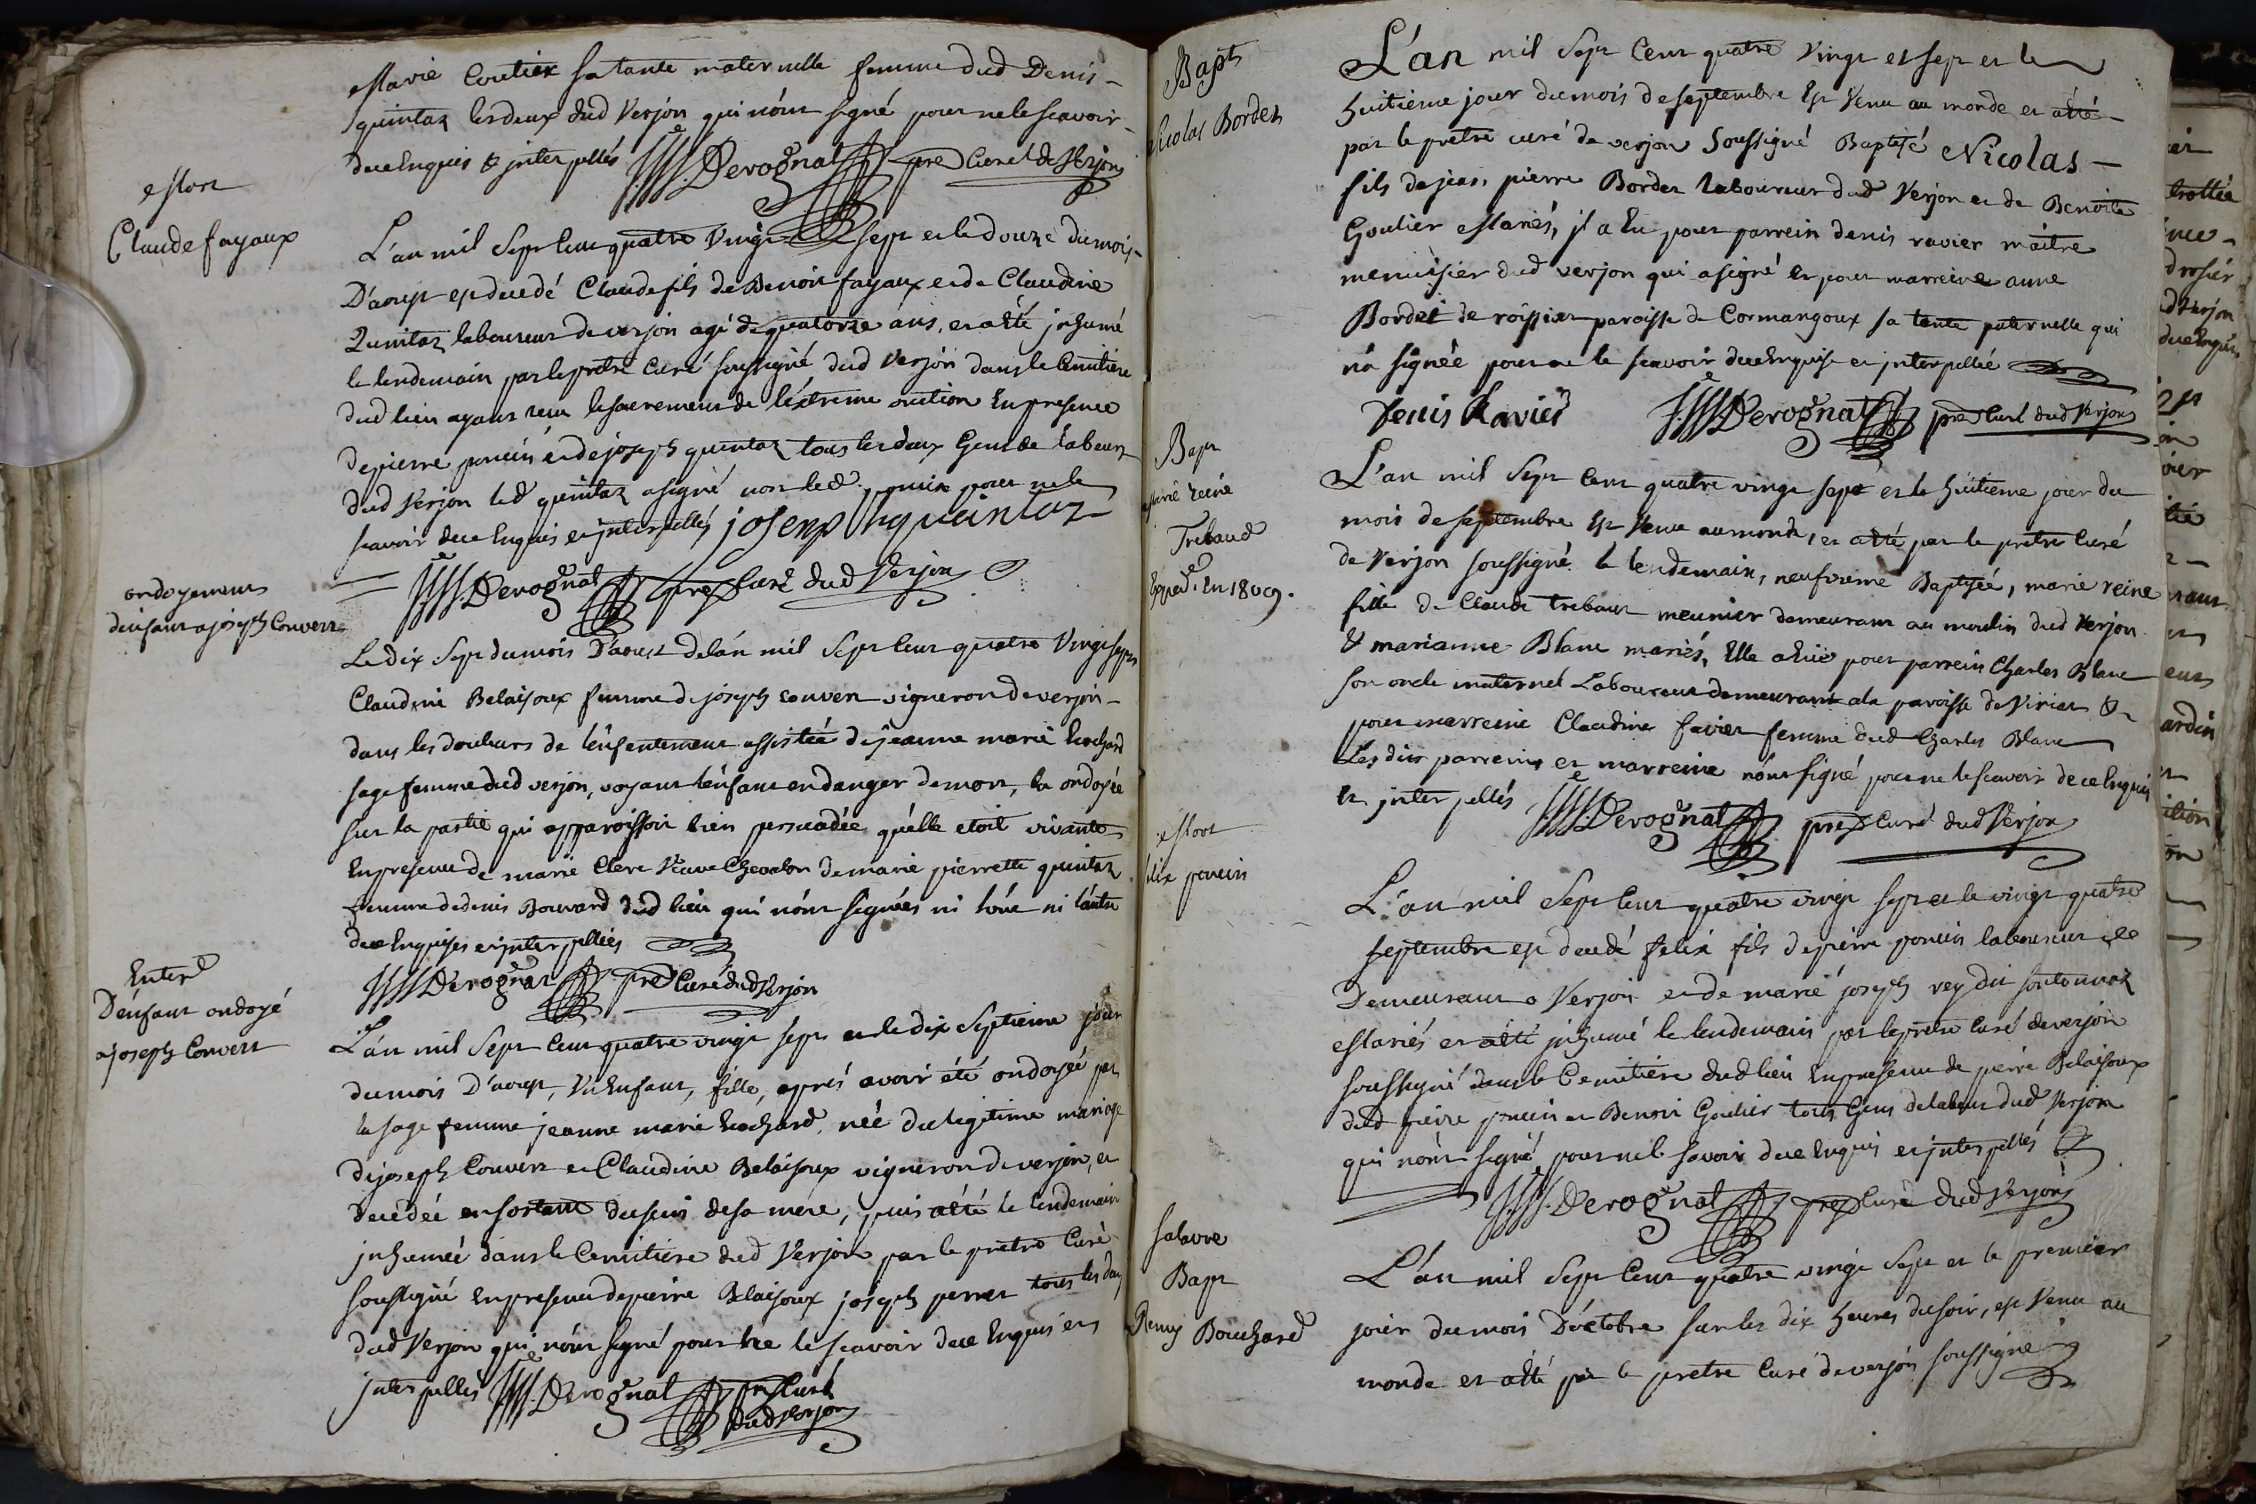 Marie Coutier sa tante maternelle femme dud Denis
quintaz les deux dud Verjon qui n'ont signé pour ne le scavoir
de ce Enquis & interpellés Derognat pre Curé de Verjon
Mort
Claude fayaux
L'an mil Sept Cent quatre Vingt sept et le douze du mois
D'aoust est decedé Claude fils de Benoit fayaux et de Claudine
Quintaz laboureur de verjon agé de quatorze ans, et a été inhumé
le lendemain par le pretre Curé soussigné dud Verjon dans le Cemitiere
dud lieu ayant reçu le sacrement de l'éxtreme onction En presence
de pierre poncin et de joseph quintaz tous les deux Gens de labeur
dud Verjon led quintaz a signé non led poncin pour ne le
scavoir de ce Enquis et interpellés joseph quintaz
Derognat pre Curé dud Verjon
ondoyement
d'enfant a joseph Convert
Le dix Sept du mois D'aoust de l'an mil Sept Cent quatre Vingt sept
Claudine Belaisoux femme de joseph convert vigneron de verjon
dans les douleurs de l'enfantement assistée de jeanne marie Bochard
sage femme dud verjon, voyant l'enfant en danger de mort, la ondoyée
sur la partie qui apparoissoit bien persuadée qu'elle etoit vivante
En presence de marie Clerc Veuve Chevalon de marie pierrette quintaz
femme de denis Bouvard dud lieu qui n'ont signées ni l'une ni l'autre
de ce Enquises et interpellées
Derognat pre Curé dud Verjon
Enter
D'enfant ondoyé
a joseph Convert
L'an mil Sept Cent quatre vingt sept et le dix Septieme jour
du mois D'aoust, Un Enfant, fille, aprés avoir été ondoyée par
la sage femme jeanne marie Bochard, née du legitime mariage
de joseph Convert et Claudine Belaisoux vigneron de verjon, et
decédée en sortant du sein de sa mere, puis a été le lendemain
inhumée dans le Cemitiere dud Verjon par le pretre Curé
soussigné En presence de pierre Belaisoux joseph perret tous les deux
dud Verjon qui n'ont signé pour ne le scavoir de ce Enquis et
interpellés Derognat pre Curé
dud Verjon
Bapt
Nicolas Bordet
L'an mil Sept Cent quatre Vingt et sept et le
huitieme jour du mois de septembre Est Venu au monde et a été
par le pretre curé de verjon Soussigné Baptisé Nicolas
fils de jean pierre Bordet laboureur dud Verjon et de Benoite
Goulier Mariés, il a Eu pour parrein denis ravier maitre
menuisier dud verjon qui a signé et pour marreine anne
Bordet de roissiat paroisse de Cormangoux sa tante paternelle qui
n'a signée pour ne le scavoir de ce Enquise et interpellée
Denis Ravier Derognat pre Curé dud Verjon
Bapt
marie reine
Trebaud
Exped. En 1809.
L'an mil Sept Cent quatre vingt sept et le huitieme jour du
mois de septembre Est Venu au monde, et a été par le pretre Curé
de Verjon soussigné le lendemain, neufvieme Baptisée, marie reine
fille de Claude Trebaut meunier demeurant au moulin dud Verjon
& marianne Blanc mariés, Elle a Eue pour parrein Charles Blanc
son oncle maternel Laboureur demeurant a la paroisse de Viriat &
pour marreine Claudine favier femme dud Charles Blanc
Les dits parrein et marreine n'ont signé pour ne le scavoir de ce Enquis
et interpellés Derognat pre Curé dud Verjon
Mort
felix poncin
L'an mil Sept Cent quatre vingt sept et le vingt quatre
septembre est decedé felix fils de pierre poncin laboureur
Demeurant a Verjon et de marie joseph rey dit fontonnaz
Mariés et a été inhumé le lendemain par le pretre Curé de verjon
soussigné dans le Cemitiere dud lieu En presence de pierre Belaisoux
dud pierre poncin et Benoit Goulier tous Gens de labeur dud Verjon
qui n'ont signé pour ne le savoir de ce Enquis et interpellés
Derognat pre Curé dud Verjon
Salavre
Bapt
Remy Bouchard
L'an mil Sept Cent quatre vingt Sept et le premier
jour du mois D'octobre sur les dix heures du soir, est Venu au
monde et a été par le pretre Curé de verjon soussigné